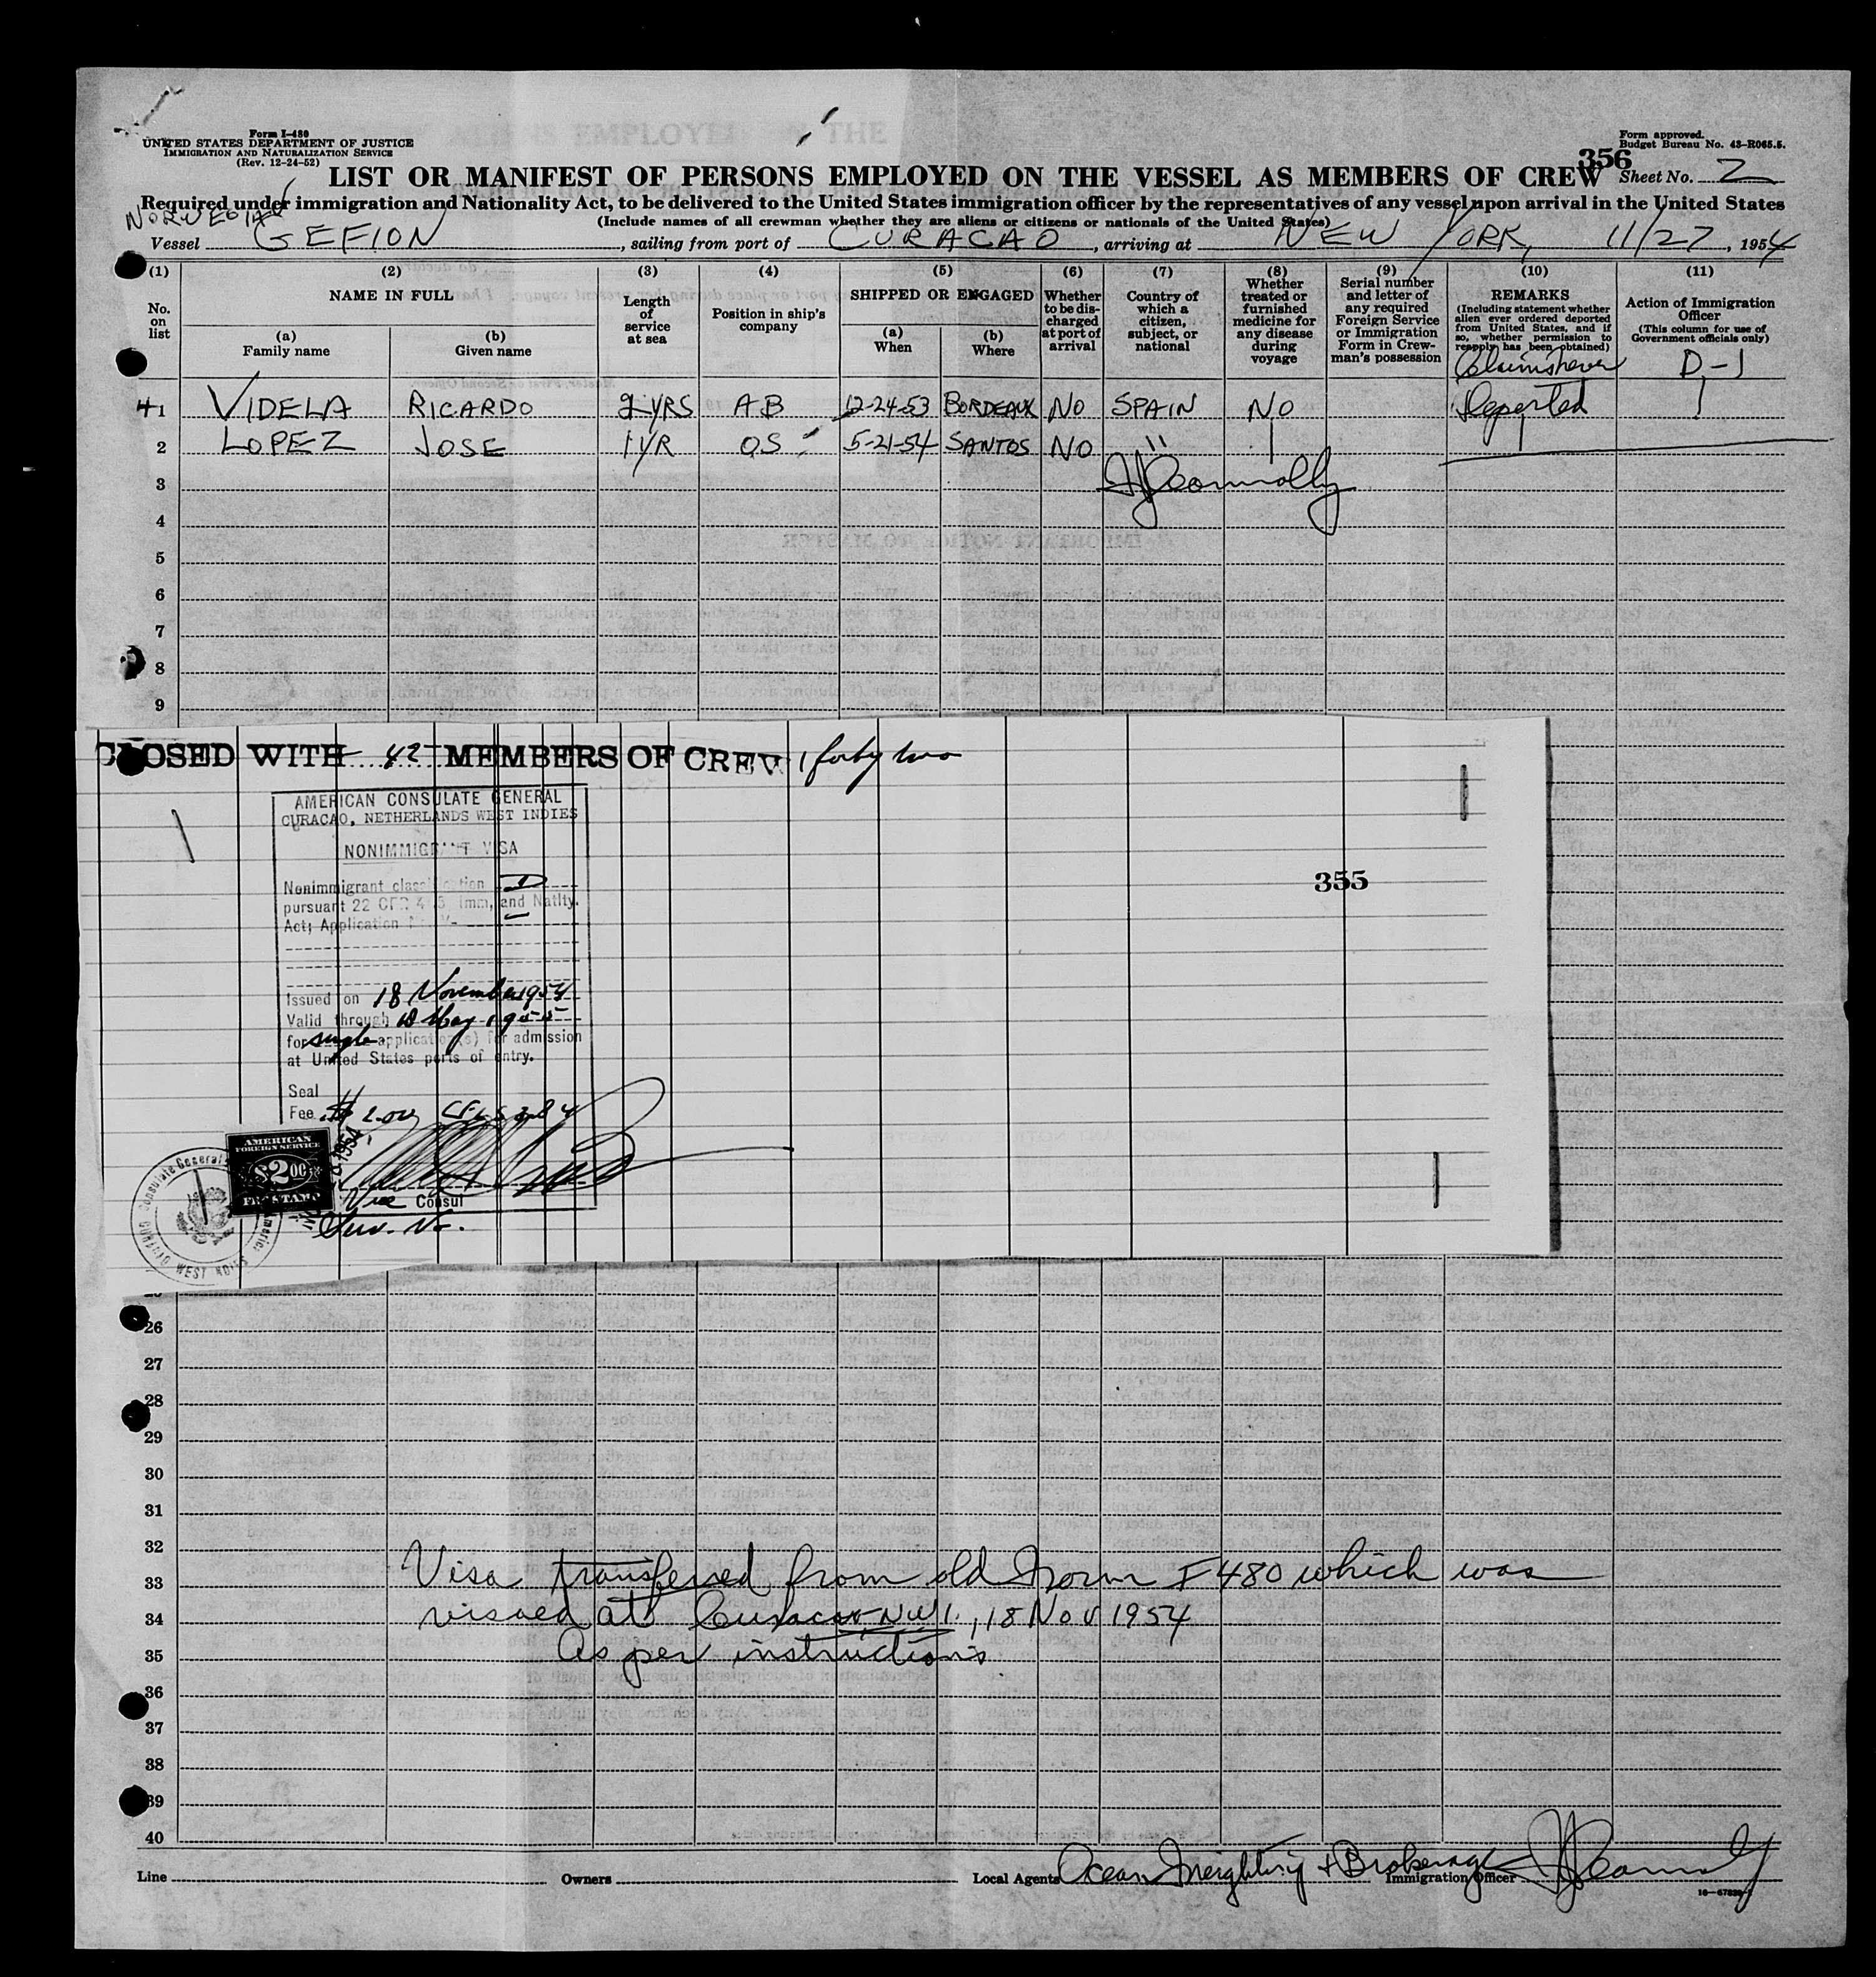 Form I-480
UNITED STATES DEPARTMENT OF JUSTICE
IMMIGRATION AND NATURALIZATION SERVICE
(Rev. 12-24-52)
Form approved.
Budget Bureau No. 43-R065.5.
356
LIST OR MANIFEST OF PERSONS EMPLOYED ON THE VESSEL AS MEMBERS OF CREW
Sheet No. 2
Required under immigration and Nationality Act, to be delivered to the United States immigration officer by the representatives of any vessel upon arrival in the United States
(Include names of all crewman whether they are aliens or citizens or nationals of the United States)
NORWEGIAN
Vessel GEFION, sailing from port of CURACAO, arriving at NEW YORK, 11/27, 1954
(1) (2) (3) (4) (5) (6) (7) (8) (9) (10) (11)
No. on list
NAME IN FULL
(a) Family name
(b) Given name
Length of service at sea
Position in ship's company
SHIPPED OR ENGAGED
(a) When
(b) Where
Whether to be discharged at port of arrival
Country of which a citizen, subject, or national
Whether treated or furnished medicine for any disease during voyage
Serial number and letter of any required Foreign Service or Immigration Form in Crewman's possession
REMARKS
(Including statement whether alien ever ordered deported from United States, and if so, whether permission to reapply has been obtained)
Action of Immigration Officer
(This column for use of Government officials only)
Claims never D-1
41 VIDELA RICARDO 2 YRS AB 12-24-53 BORDEAUX NO SPAIN NO Deported
2 LOPEZ JOSE 1 YR OS 5-21-54 SANTOS NO "
3 Connolly
4
5
6
7
8
9
CLOSED WITH 42 MEMBERS OF CREW forty two
AMERICAN CONSULATE GENERAL
CURACAO, NETHERLANDS WEST INDIES
NONIMMIGRANT VISA
355
Nonimmigrant classification D
pursuant 22 CFR Imm, and Natlty.
Act; Application V-
Issued on 18 November 1954
Valid through 18 May 1955
for single application(s) for admission
at United States ports of entry.
Seal
Fee $2.00
AMERICAN
FOREIGN SERVICE
$2.00
FEE STAMP
1954
Vice Consul
Consulate General
America
CURACAO WEST INDIES
26
27
28
29
30
31
32
33 Visa transferred from old Form F480 which was
34 visaed at Curacao N.W.I., 18 Nov 1954
35 As per instructions
36
37
38
39
40
Line
Owners
Local Agents Ocean Freighting + Brokerage
Immigration Officer Connolly